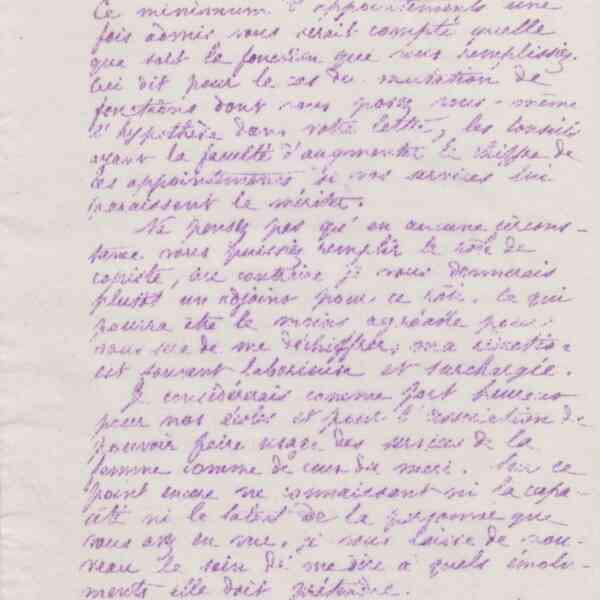 Ce minimum d'appointements une
fois admis vous serait compté quelle
que soit la fonction que vous remplissiez.
Ceci dit pour le cas de mutation de
fonctions dont vous posez vous-même
l'hypothèse dans votre lettre, les conseils
ayant la faculté d'augmenter le chiffre de
ces appointements si vos services lui
paraissent le mériter.
Ne pensez pas qu'en aucune circons-
tance vous puissiez remplir le rôle de
copiste, au contraire je vous donnerais
plutôt un adjoint pour ce rôle. Ce qui
pourra être le moins agréable pour
vous sera de me déchiffrer; ma rédaction
est souvent laborieuse et surchargée.
Je considérerais comme fort heureux
pour nos écoles et pour l'association de
pouvoir faire usage des services de la
femme comme de ceux du mari. Sur ce
point encore ne connaissant ni la capa-
cité ni le talent de la personne que
vous avez en vue, je vous laisse de nou-
veau le soin de me dire à quels émolu-
ments elle doit prétendre.